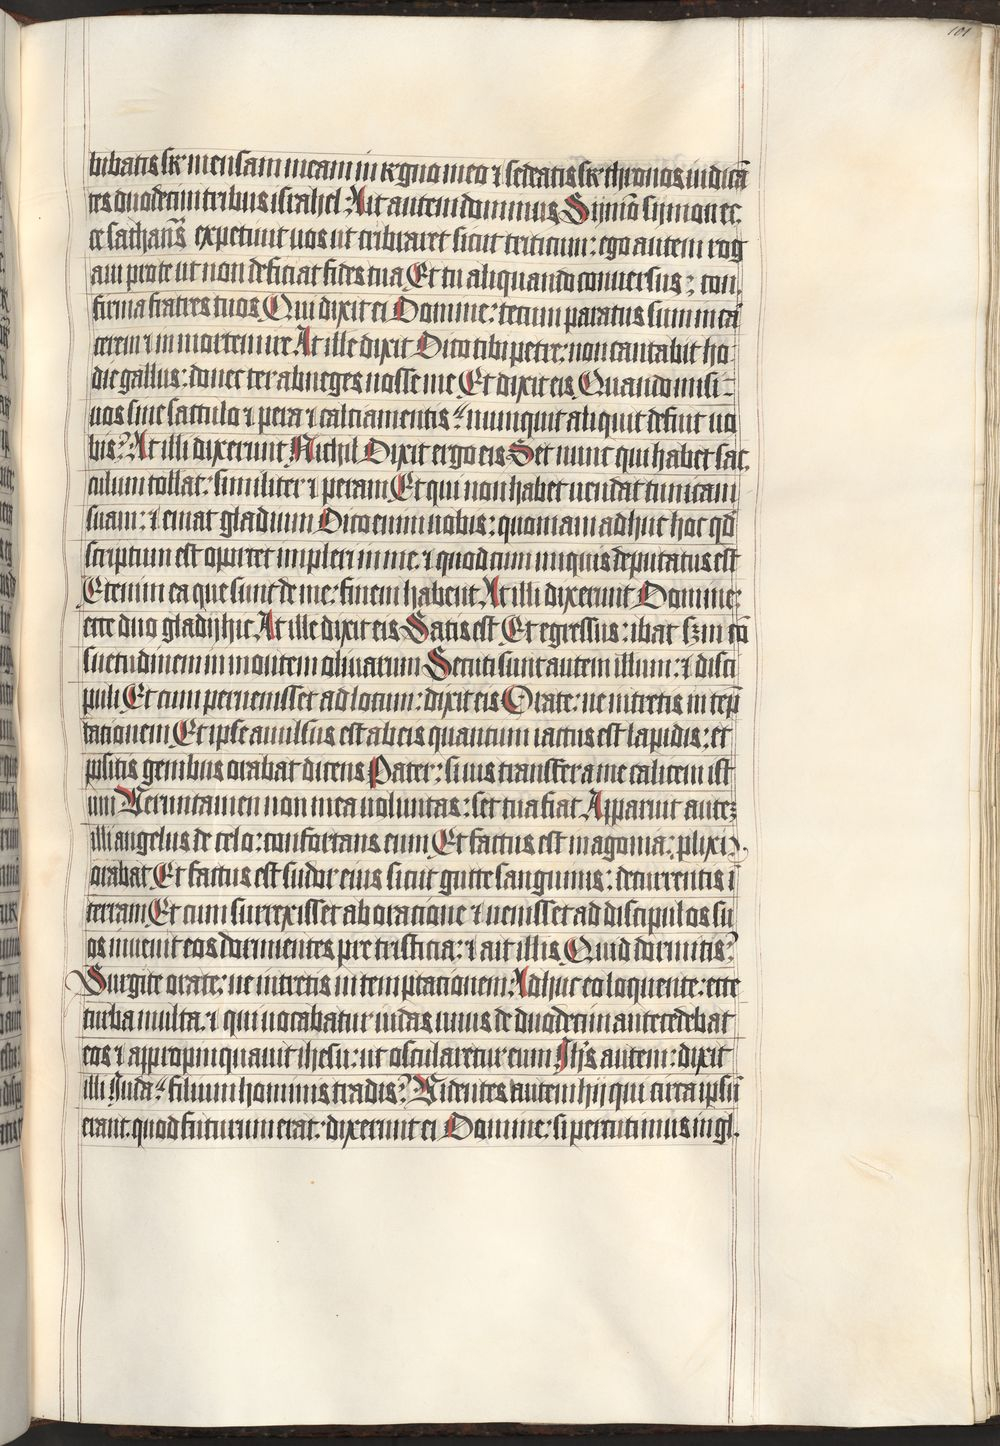 101
bibatis sr mensam meam in regno meo ⁊ sedeatis sr thronos iudicā
tes duodecim tribus israhel Ait autem dominus Symō symon ec
ce sathanas expetiuit uos ut cribraret sicut triticum: ego autem rog
aui pro te ut non deficiat fides tua Et tu aliquando conuersus: con
firma fratres tuos Qui dixit ei Domine: tecum paratus sum in cā
cerem ⁊ in mortem ire At ille dixit Dico tibi petre: non cantabit ho
die gallus: donec ter abneges nosse me Et dixit eis Quando misi
uos sine sacculo ⁊ pera ⁊ calciamentis: numquit aliquit defuit uo
bis? At illi dixerunt Nichil Dixit ergo eis Set nunc qui habet sac
culum tollat: similiter ⁊ peram Et qui non habet uendat tunicam
suam: ⁊ emat gladium Dico enim uobis: quoniam adhuc hoc qd̄
scriptum est oportet impleri in me. ⁊ quod cum iniquis deputatus est
Etenim ea que sunt de me: finem habent At illi dixerunt Domine:
ecce duo gladij hic At ille dixit eis Satis est Et egressus: ibat scdm cō
suetudinem in montem oliuarum Secuti sunt autem illum: ⁊ disci
puli Et cum peruenisset ad locum: dixit eis Orate: ne intretis in tēp
tationem Et ipse auulsus est ab eis quantum iactus est lapidis: et
positis genibus orabat dicens Pater: si uis transfer a me calicem ist
um Veruntamen non mea uoluntas: set tua fiat Apparuit autez
illi angelus de celo: confortans eum Et factus est in agonia: plixi
orabat Et factus est sudor eius sicut gutte sanguinis: decurrentis ī
terram Et cum surrexisset ab oracione ⁊ uenisset ad discipulos su
os inuenit eos dormientes pre tristicia: ⁊ ait illis Quid dormitis?
Surgite orate: ne intretis in temptacionem Adhuc eo loquente: ecce
turba multa. ⁊ qui uocabatur iudas unus de duodecim antecedebat
eos ⁊ appropinquauit ihesu: ut oscularetur eum Ih's autem: dixit
illi Juda: filium hominis tradis? Videntes autem hij qui circa ipsū
erant. quod futurum erat: dixerunt ei Domine: si percutimus in gl